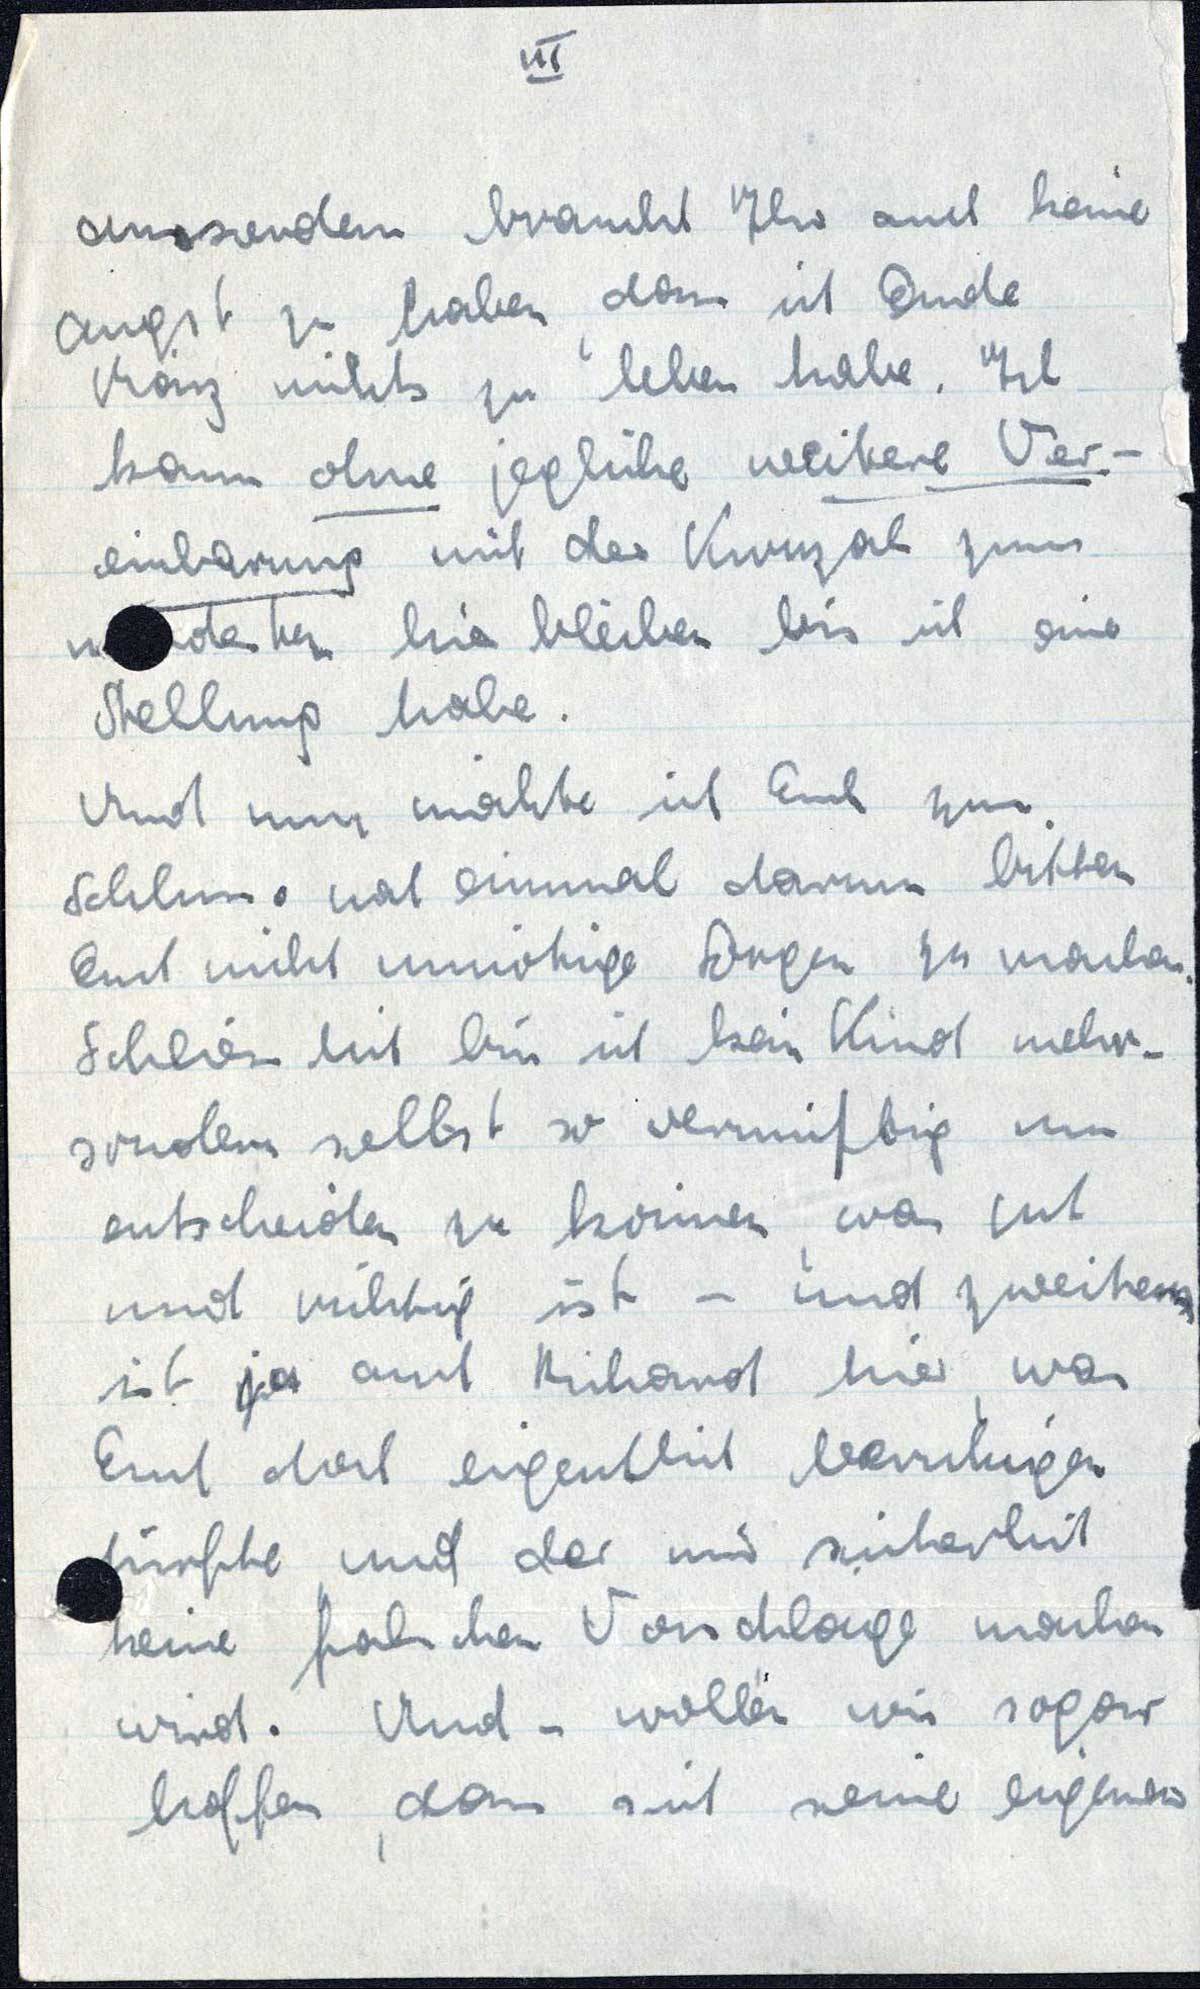 III
ausserdem braucht Ihr auch keine
Angst zu haben, dass ich Ende
März nichts zu leben habe. Ich
kann ohne jegliche weitere Ver-
einbarung mit der zum
hier bleiben bis ich eine
Stellung habe.
Und nun möchte ich Euch zum
Schluss noch einmal darum bitten
Euch nicht unnötige Sorgen zu machen.
Schliesslich bin ich kein Kind mehr -
sondern selbst so vernünftig um
entscheiden zu können, was gut
und richtig ist - und zweitens
ist ja auch Richard hier, was
Euch doch eigentlich beruhigen
dürfte und der mir sicherlich
keine falschen Vorschläge machen
wird. Und - wollen wir sogar
hoffen, dass sich seine eigenen